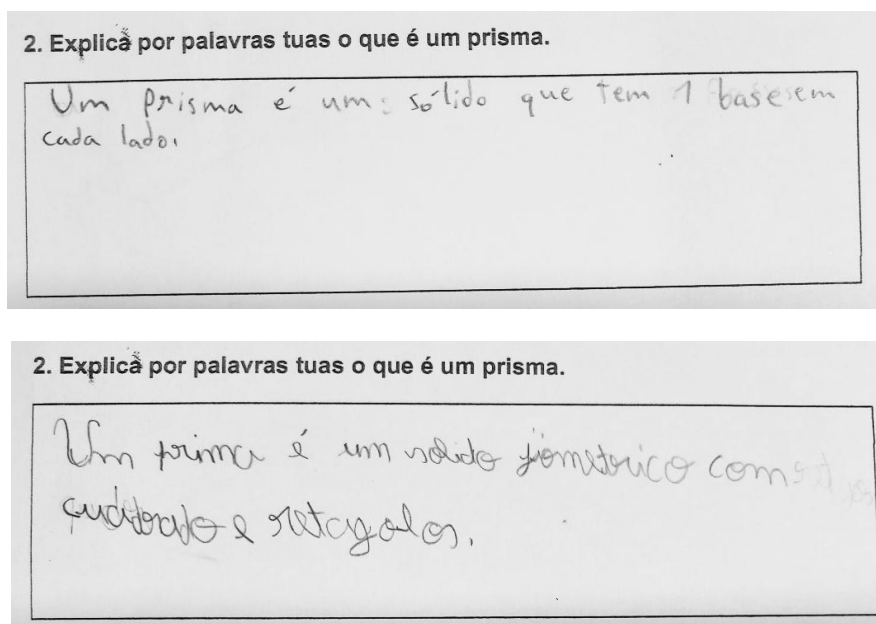 2. Explica por palavras tuas o que é um prisma.
Um prisma é um sólido que tem 1 base em
cada lado.
2. Explica por palavras tuas o que é um prisma.
Um prima é um solido jiometrico com
cuadrado e retagolos.